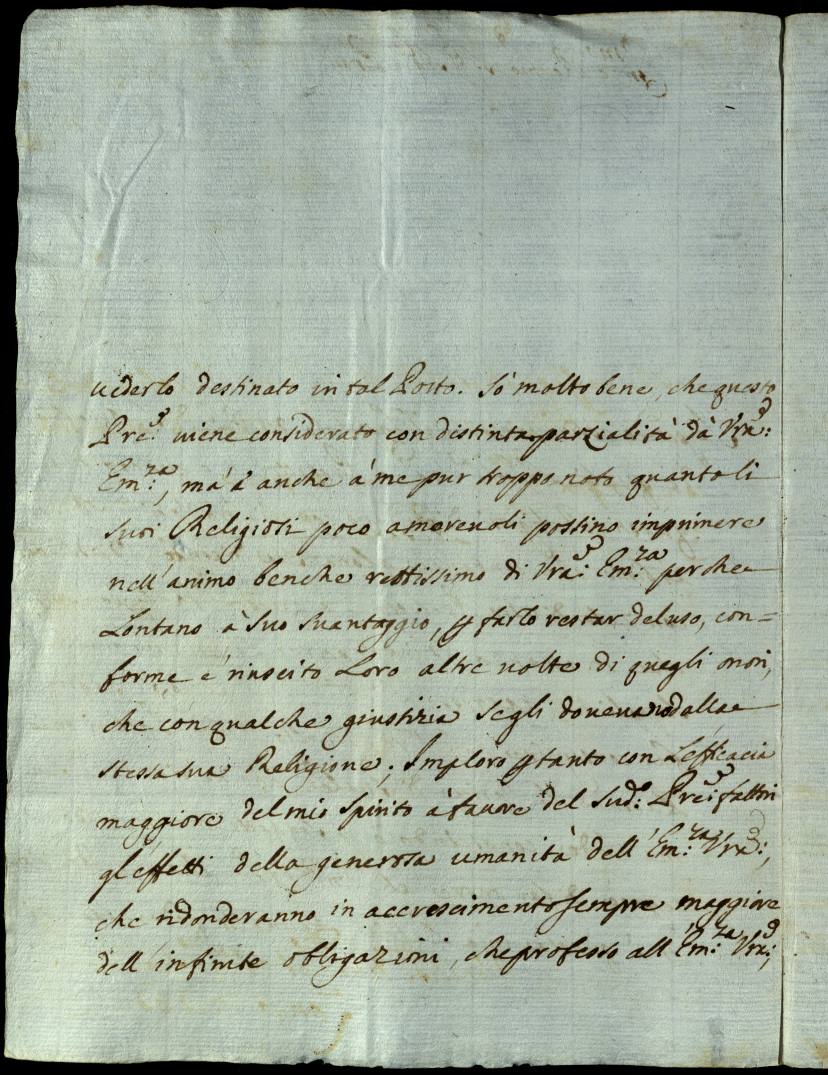 uederlo destinato in tal Posto. Sò molto bene, che questo
Pre: uiene considerato con distinta parzialità dà Vra:
Em:za, mà è anche à me pur troppo noto quanto li
suoi Religiosi poco amoreuoli possino imprimere
nell'animo benche rettissimo di Vra: Em:za perche
Lontano à suo suantaggio, p farlo restar deluso, con=
forme è riuscito Loro altre uolte di quegli onori,
che con qualche giustizia segli doueuano dalla
stessa sua Religione; Imploro ptanto con l'efficacia
maggiore del mio spirito à fauore del sud:o Pre:
gl'effetti della generosa umanità dell'Em:za Vra:,
che ridonderanno in accrescimento sempre maggiore
dell'infinite obligazioni, che professo all'Em:za Vra;